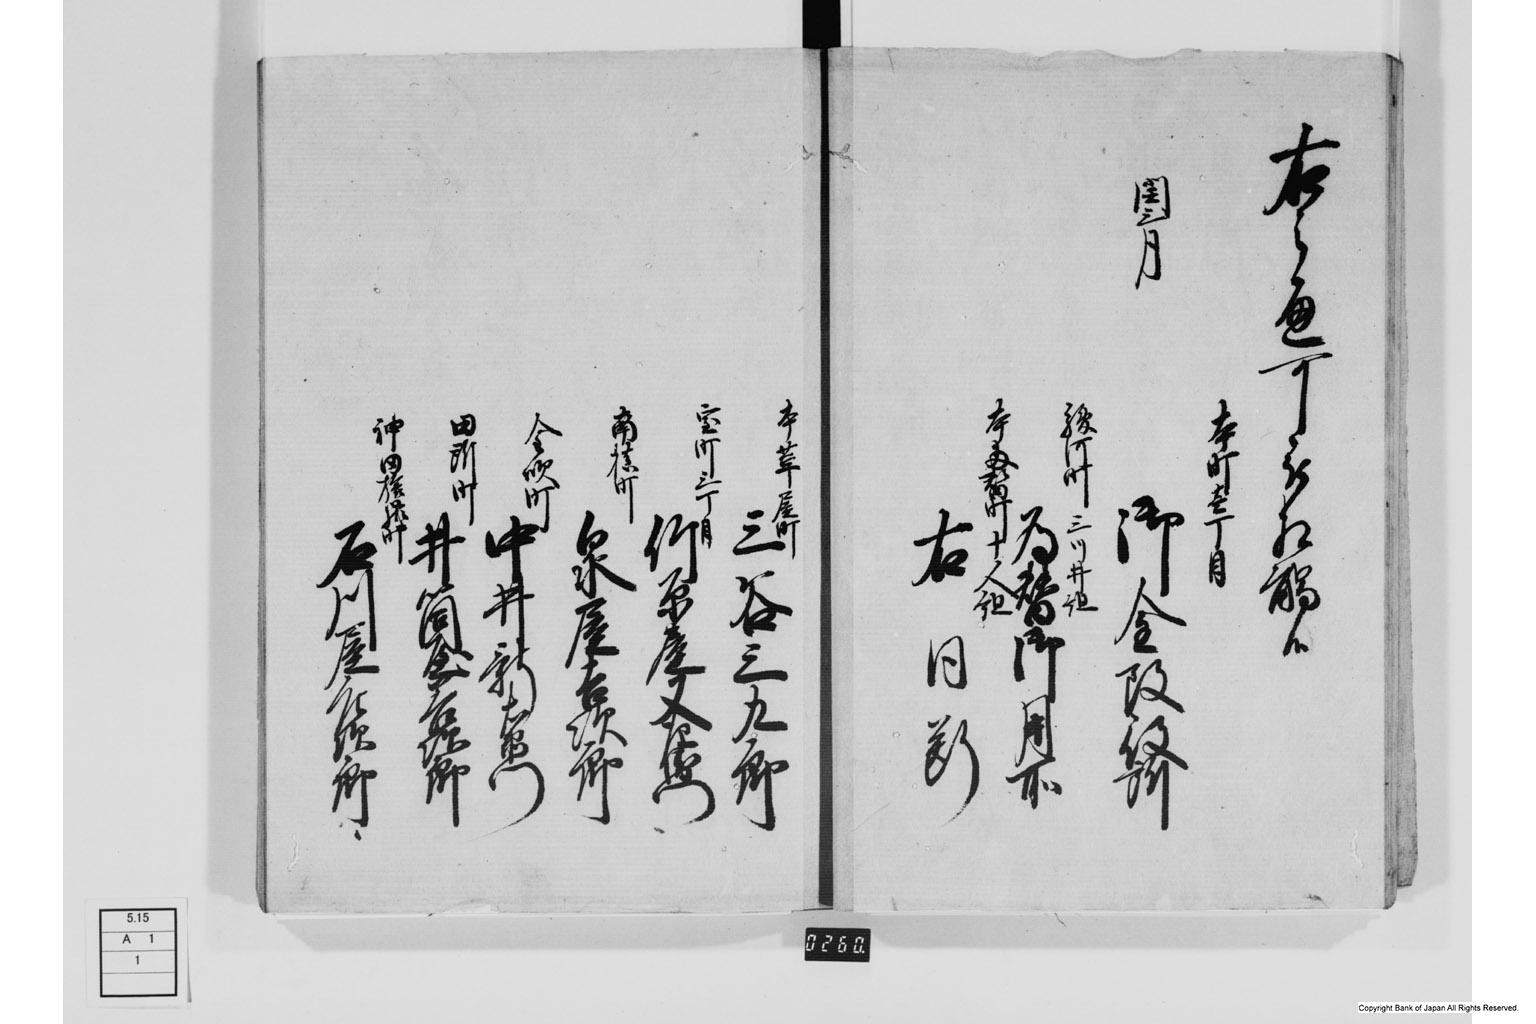 右之通可被相觸候
閏三月
本町壱丁目
御金改役所
駿河町 三川井組
為替御用所
本両替町 十人組
右同断
本革屋町
三谷三九郎
室町三丁目
竹原屋文右衛門
南槙町
泉屋吉次郎
金吹町
中井新右衛門
田所町
井筒屋善次郎
神田旅籠町
石川屋庄次郎
5.15
A 1
1
0260.
Copyright Bank of Japan All Rights Reserved.